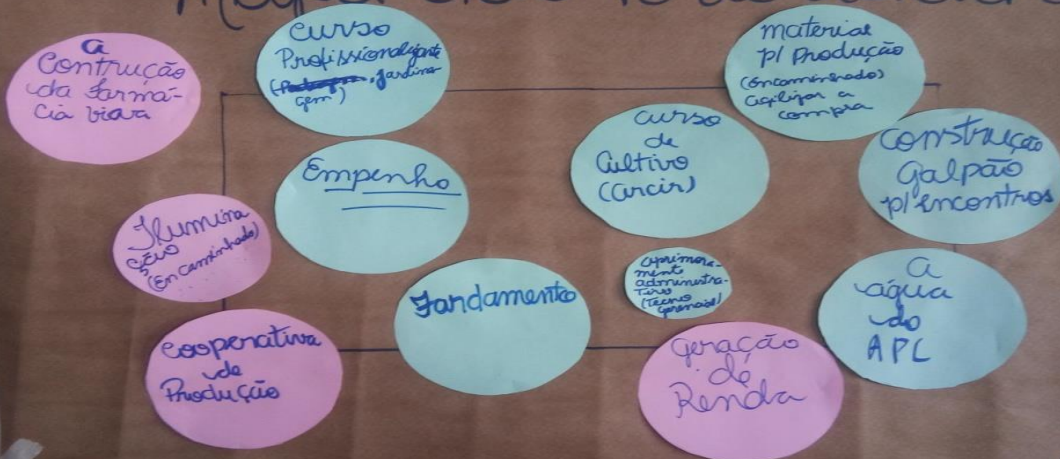 a
Contrução
da farmá-
cia viava
curso
Profissionalizante
(, jardina-
gem)
material
p/ Produção
(encaminhado)
agilizar a
compra
curso
de
Cultivo
Empenho
construção
galpão
p/ encontros
Ilumina
ção
(Encaminhado)
Fardamento
aprimora-
mento
administra-
tivo
a
água
do
APL
Cooperativa
de
Produção
geração
de
Renda